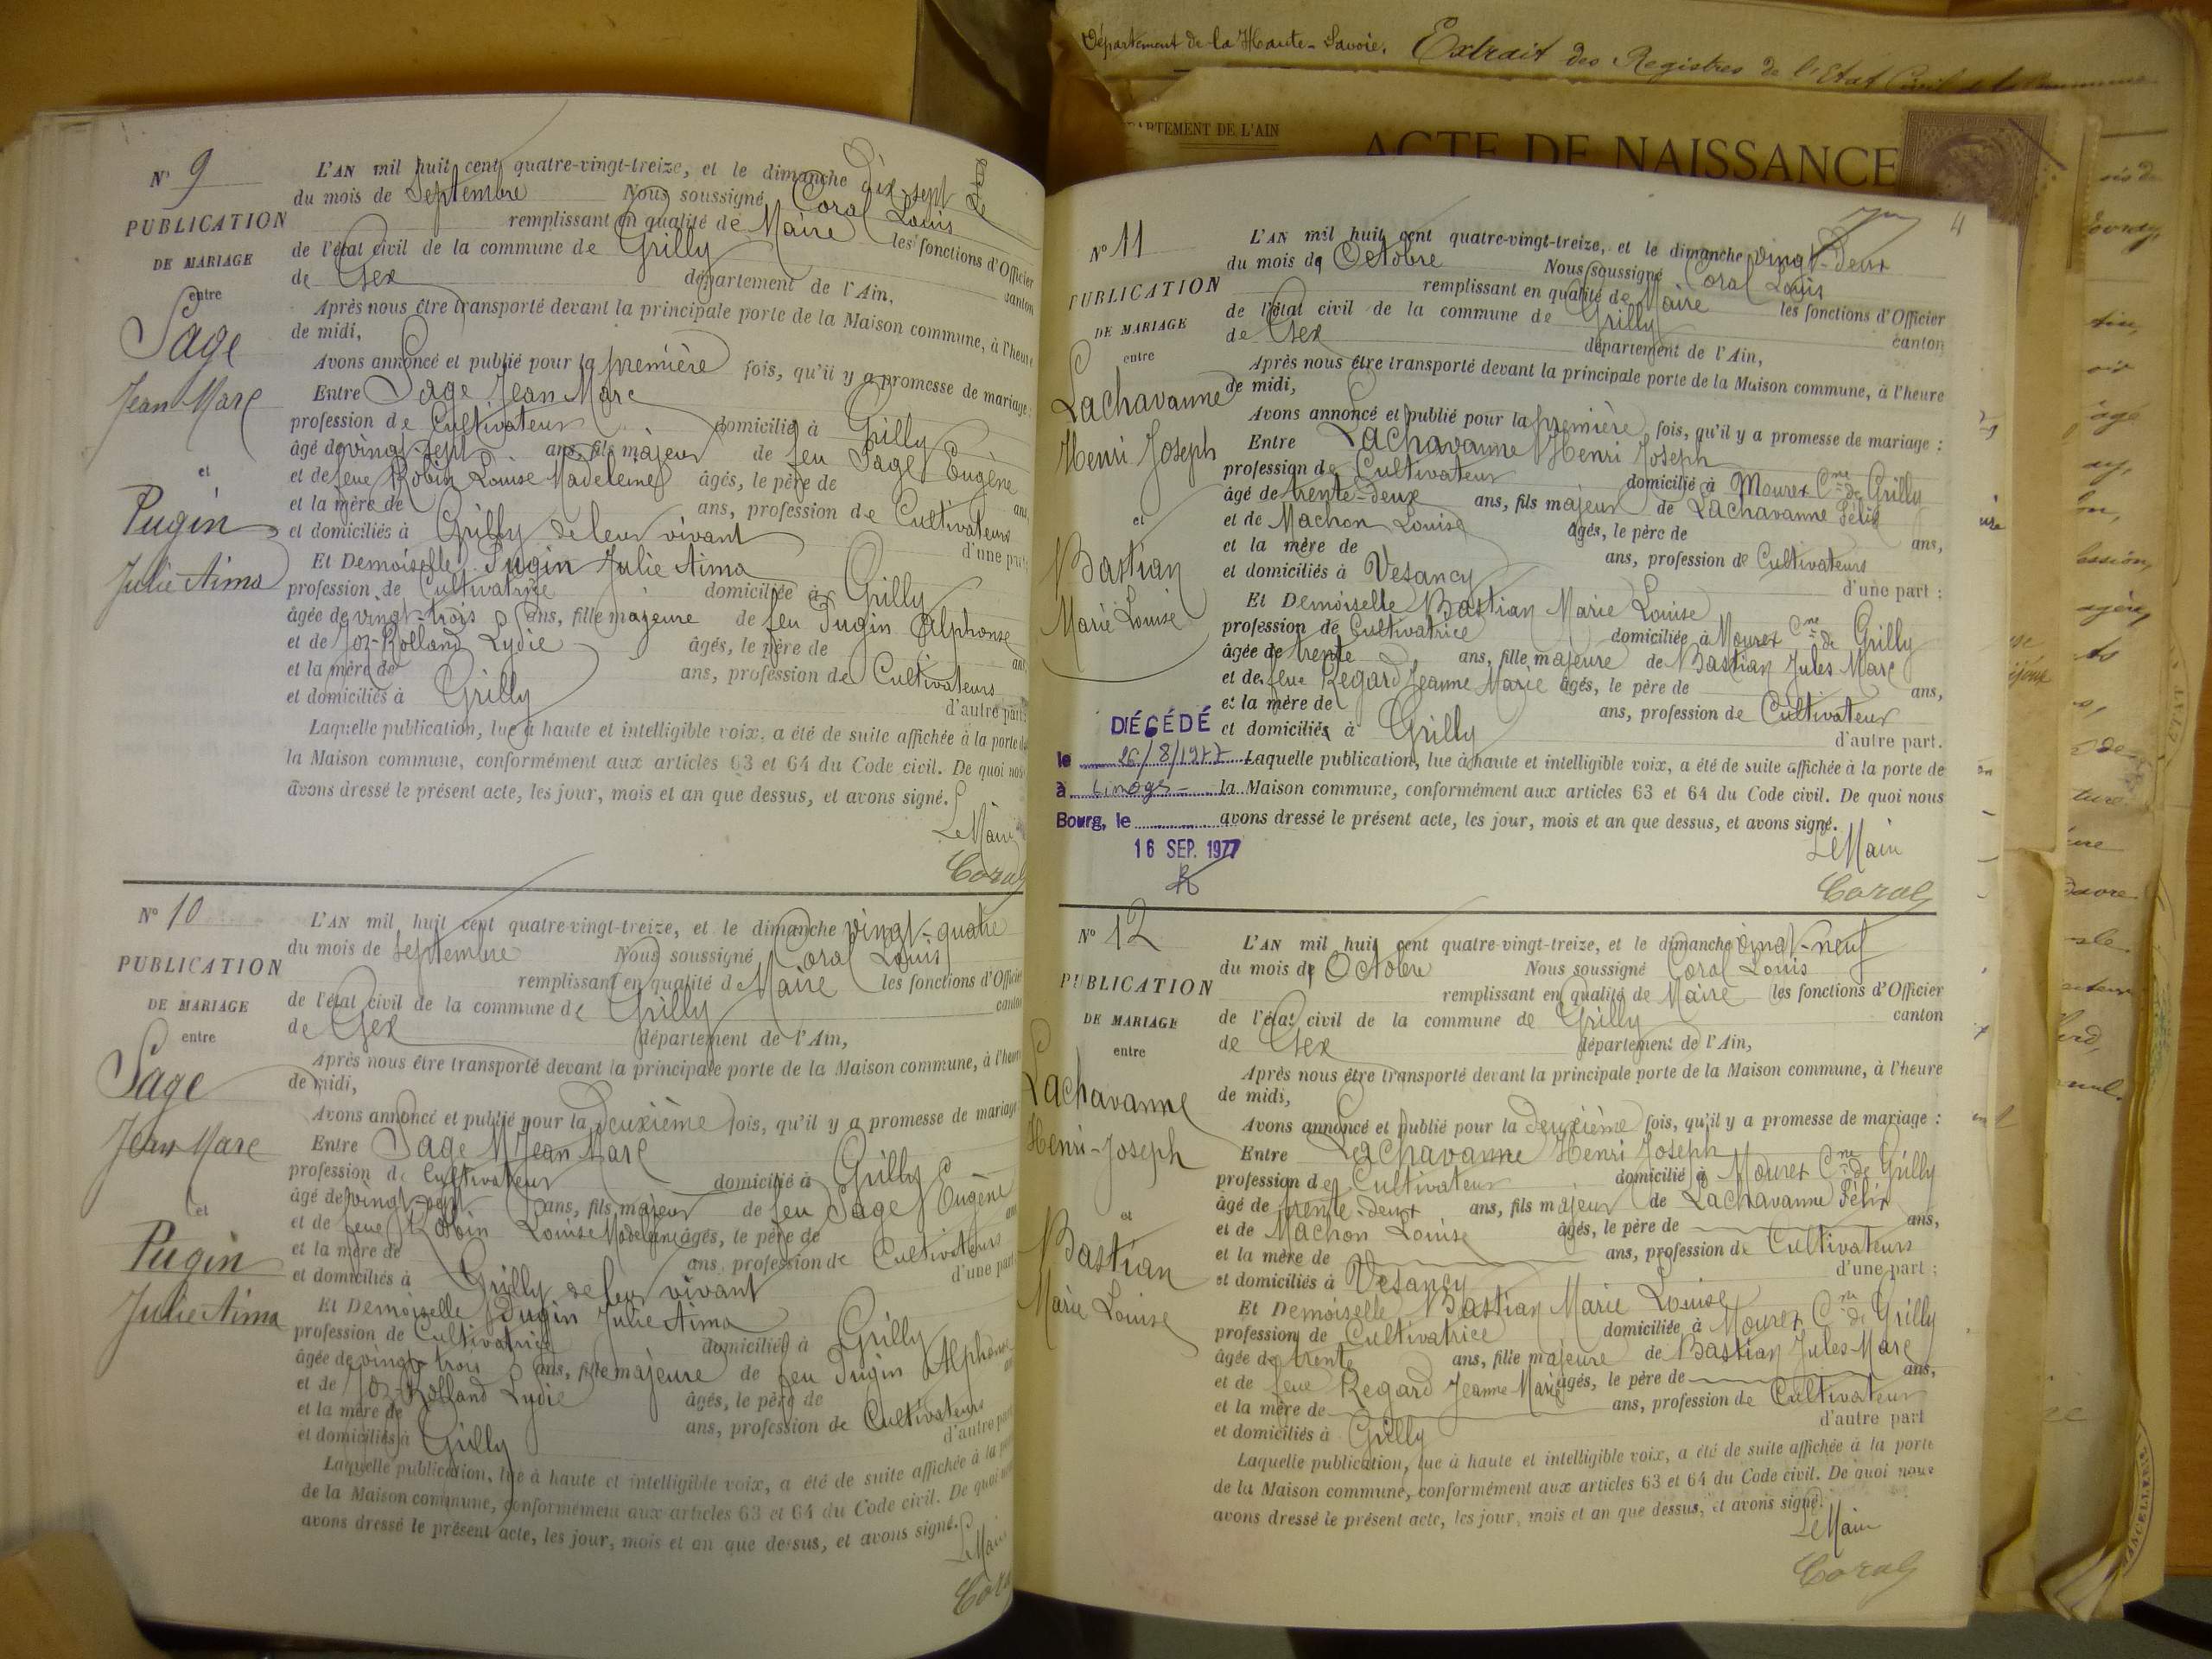 Département de la Haute-Savoie. Extrait des Registres de l'Etat Civil de la Commune
DEPARTEMENT DE L'AIN
ACTE DE NAISSANCE
N° 9
PUBLICATION
DE MARIAGE
entre
Sage
Jean Marc
et
Pugin
Julie Aima
L'AN mil huit cent quatre-vingt-treize, et le dimanche dix-sept
du mois de Septembre Nous soussigné Coral Louis
remplissant en qualité de Maire les fonctions d'Officier
de l'état civil de la commune de Grilly canton
de Gex département de l'Ain,
Après nous être transporté devant la principale porte de la Maison commune, à l'heure
de midi,
Avons annoncé et publié pour la première fois, qu'il y a promesse de mariage :
Entre Sage Jean Marc
profession de Cultivateur domicilié à Grilly
âgé de vingt-sept ans, fils majeur de feu Sage Eugène
et de feue Robin Louise Madeleine âgés, le père de ans,
et la mère de ans, profession de Cultivateurs
et domiciliés à Grilly de leur vivant d'une part
Et Demoiselle Pugin Julie Aima
profession de Cultivatrice domiciliée à Grilly
âgée de vingt-trois ans, fille majeure de feu Pugin Alphonse
et de Joz-Rolland Lydie âgés, le père de ans
et la mère de ans, profession de Cultivateurs
et domiciliés à Grilly d'autre part
Laquelle publication, lue à haute et intelligible voix, a été de suite affichée à la porte de
la Maison commune, conformément aux articles 63 et 64 du Code civil. De quoi nous
avons dressé le présent acte, les jour, mois et an que dessus, et avons signé.
Le Maire
Coral
N° 10
PUBLICATION
DE MARIAGE
entre
Sage
Jean Marc
et
Pugin
Julie Aima
L'AN mil huit cent quatre-vingt-treize, et le dimanche vingt-quatre
du mois de septembre Nous soussigné Coral Louis
remplissant en qualité de Maire les fonctions d'Officier
de l'état civil de la commune de Grilly canton
de Gex département de l'Ain,
Après nous être transporté devant la principale porte de la Maison commune, à l'heure
de midi,
Avons annoncé et publié pour la deuxième fois, qu'il y a promesse de mariage
Entre Sage Jean Marc
profession de Cultivateur domicilié à Grilly
âgé de vingt-sept ans, fils majeur de feu Sage Eugène
et de feue Robin Louise Madeleine âgés, le père de ans
et la mère de ans, profession de Cultivateurs
et domiciliés à Grilly de leur vivant d'une part
Et Demoiselle Pugin Julie Aima
profession de Cultivatrice domiciliée à Grilly
âgée de vingt-trois ans, fille majeure de feu Pugin Alphonse
et de Joz-Rolland Lydie âgés, le père de ans
et la mère de ans, profession de Cultivateurs
et domiciliés à Grilly d'autre part
Laquelle publication, lue à haute et intelligible voix, a été de suite affichée à la porte
de la Maison commune, conformément aux articles 63 et 64 du Code civil. De quoi nous
avons dressé le présent acte, les jour, mois et an que dessus, et avons signé.
Le Maire
Coral
4
N° 11
PUBLICATION
DE MARIAGE
entre
Lachavanne
Henri Joseph
et
Bastian
Marie Louise
L'AN mil huit cent quatre-vingt-treize, et le dimanche vingt-deux
du mois de Octobre Nous soussigné Coral Louis
remplissant en qualité de Maire les fonctions d'Officier
de l'état civil de la commune de Grilly canton
de Gex département de l'Ain,
Après nous être transporté devant la principale porte de la Maison commune, à l'heure
de midi,
Avons annoncé et publié pour la première fois, qu'il y a promesse de mariage :
Entre Lachavanne Henri Joseph
profession de Cultivateur domicilié à Mourex Cne de Grilly
âgé de trente-deux ans, fils majeur de Lachavanne Félix
et de Machon Louise âgés, le père de ans,
et la mère de ans, profession de Cultivateurs
et domiciliés à Vesancy d'une part :
Et Demoiselle Bastian Marie Louise
profession de Cultivatrice domiciliée à Mourex Cne de Grilly
âgée de trente ans, fille majeure de Bastian Jules Marc
et de feue Regard Jeanne Marie âgés, le père de ans,
et la mère de ans, profession de Cultivateur
et domiciliés à Grilly d'autre part.
Laquelle publication, lue à haute et intelligible voix, a été de suite affichée à la porte de
la Maison commune, conformément aux articles 63 et 64 du Code civil. De quoi nous
avons dressé le présent acte, les jour, mois et an que dessus, et avons signé.
Le Maire
Coral
DÉCÉDÉ
le 26/8/1977
à Limoges
Bourg, le
16 SEP. 1977
N° 12
PUBLICATION
DE MARIAGE
entre
Lachavanne
Henri-Joseph
et
Bastian
Marie Louise
L'AN mil huit cent quatre-vingt-treize, et le dimanche vingt-neuf
du mois de Octobre Nous soussigné Coral Louis
remplissant en qualité de Maire les fonctions d'Officier
de l'état civil de la commune de Grilly canton
de Gex département de l'Ain,
Après nous être transporté devant la principale porte de la Maison commune, à l'heure
de midi,
Avons annoncé et publié pour la deuxième fois, qu'il y a promesse de mariage :
Entre Lachavanne Henri Joseph
profession de Cultivateur domicilié à Mourex Cne de Grilly
âgé de trente-deux ans, fils majeur de Lachavanne Félix
et de Machon Louise âgés, le père de ans,
et la mère de ans, profession de Cultivateurs
et domiciliés à Vesancy d'une part ;
Et Demoiselle Bastian Marie Louise
profession de Cultivatrice domiciliée à Mourex Cne de Grilly
âgée de trente ans, fille majeure de Bastian Jules-Marc
et de feue Regard Jeanne Marie âgés, le père de ans,
et la mère de ans, profession de Cultivateur
et domiciliés à Grilly d'autre part
Laquelle publication, lue à haute et intelligible voix, a été de suite affichée à la porte
de la Maison commune, conformément aux articles 63 et 64 du Code civil. De quoi nous
avons dressé le présent acte, les jour, mois et an que dessus, et avons signé.
Le Maire
Coral